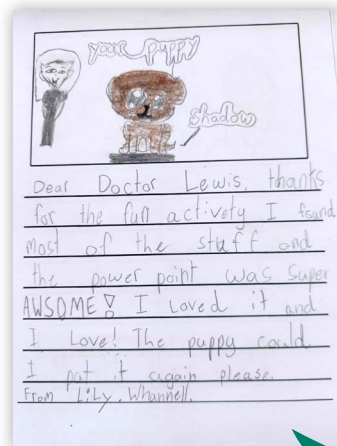 your puppy
shadow
Dear Doctor Lewis, thanks
for the fun activety I found
most of the staff and
the power point was super
AWSOME! I loved it and
I Love! The puppy could
I pat it again please.
From LiLy. Whannell.